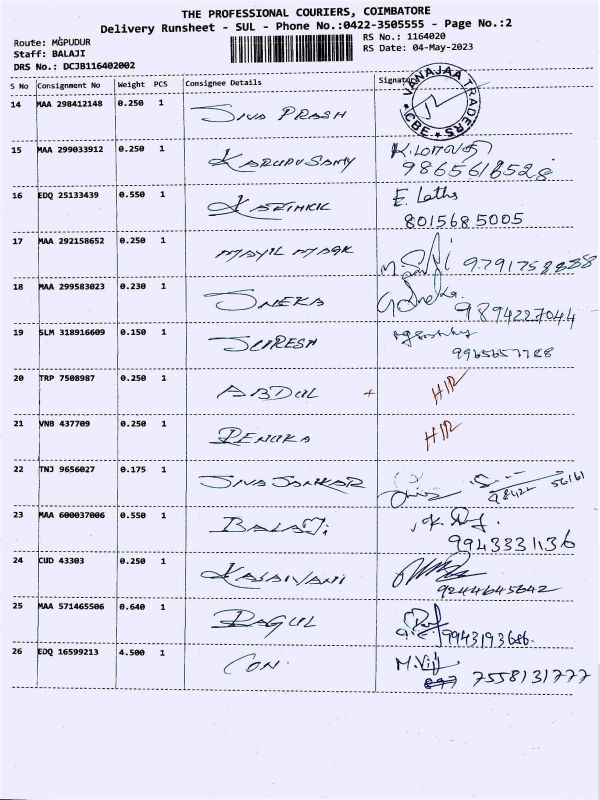 THE PROFESSIONAL COURIERS, COIMBATORE
Delivery Runsheet - SUL - Phone No.:0422-3505555 - Page No.:2
Route: MGPUDUR
Staff: BALAJI
DRS No.: DCJB116402002
RS No.: 1164020
RS Date: 04-May-2023
S No Consignment No Weight PCS Consignee Details Signature
VANAJAA TRADERS
★ CBE ★
14 MAA 298412148 0.250 1 SIVA PRASH
15 MAA 299033912 0.250 1 KARUPUSAMY K. மாலதி
9865616528
16 EDQ 25133439 0.550 1 KARTHIK E. Latha
8015685005
17 MAA 292158652 0.250 1 MAYIL MARK
18 MAA 299583023 0.230 1 SNEKA Sneka
9894227044
19 SLM 318916609 0.150 1 SURESH
20 TRP 7508987 0.250 1 ABDUL
21 VNB 437709 0.250 1 RENUKA
22 TNJ 9656027 0.175 1 SIVA SANKAR
98422 56161
23 MAA 600037006 0.550 1 BALAJI
9943331136
24 CUD 43303 0.250 1 KALAIVANI
9244645642
25 MAA 571465506 0.640 1 RAGUL
9943193686.
26 EDQ 16599213 4.500 1 CON. M.Viji
7558131777